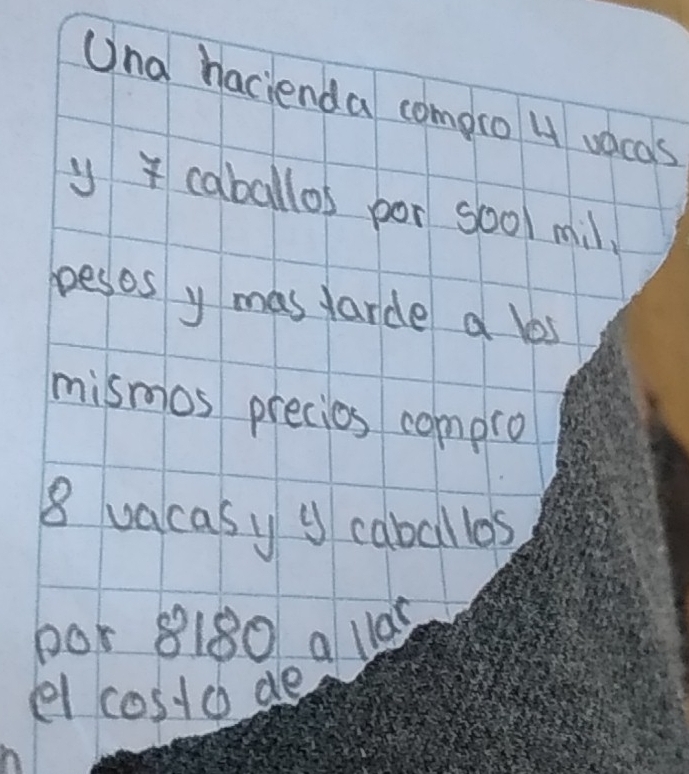 Una hacienda compro 4 vacas
y 7 caballos por 5001 mil,
pesos y mas tarde a los
mismos precios compro
8 vacas y 9 caballos
por 8180 allar
el costo de